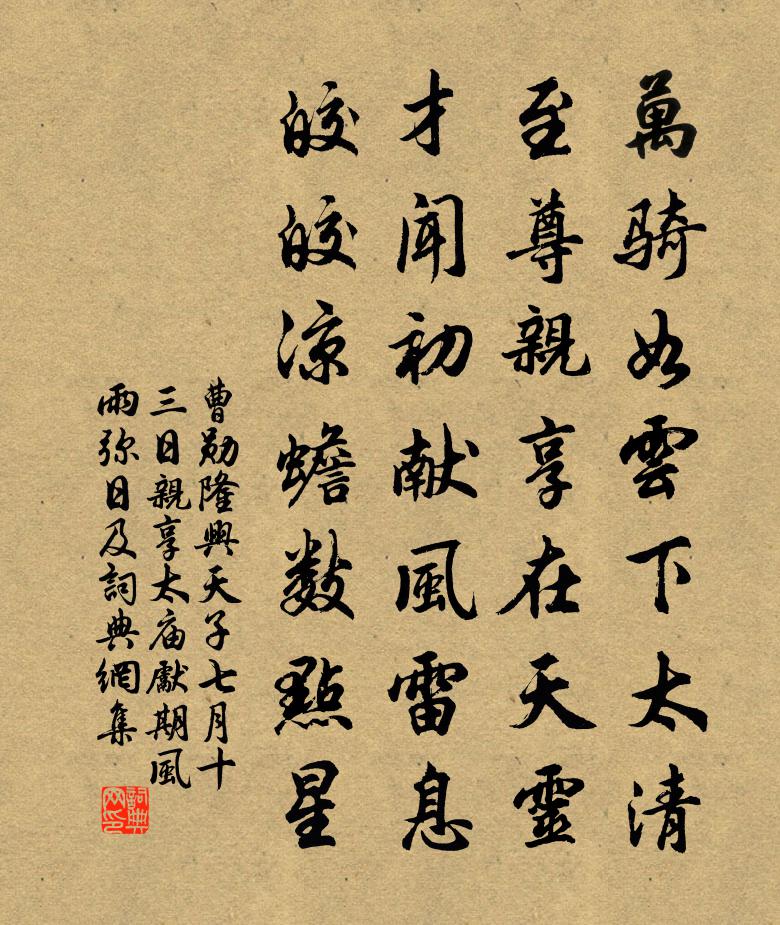 萬骑如雲下太清
至尊親享在天靈
才闻初献風雷息
皎皎凉蟾数點星
曹勛隆興天子七月十
三日親享太庙獻期風
雨弥日及詞典網集
詞典
网印